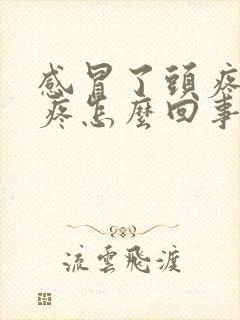 感冒了頭疼
疼怎麼回事
流雲飛渡